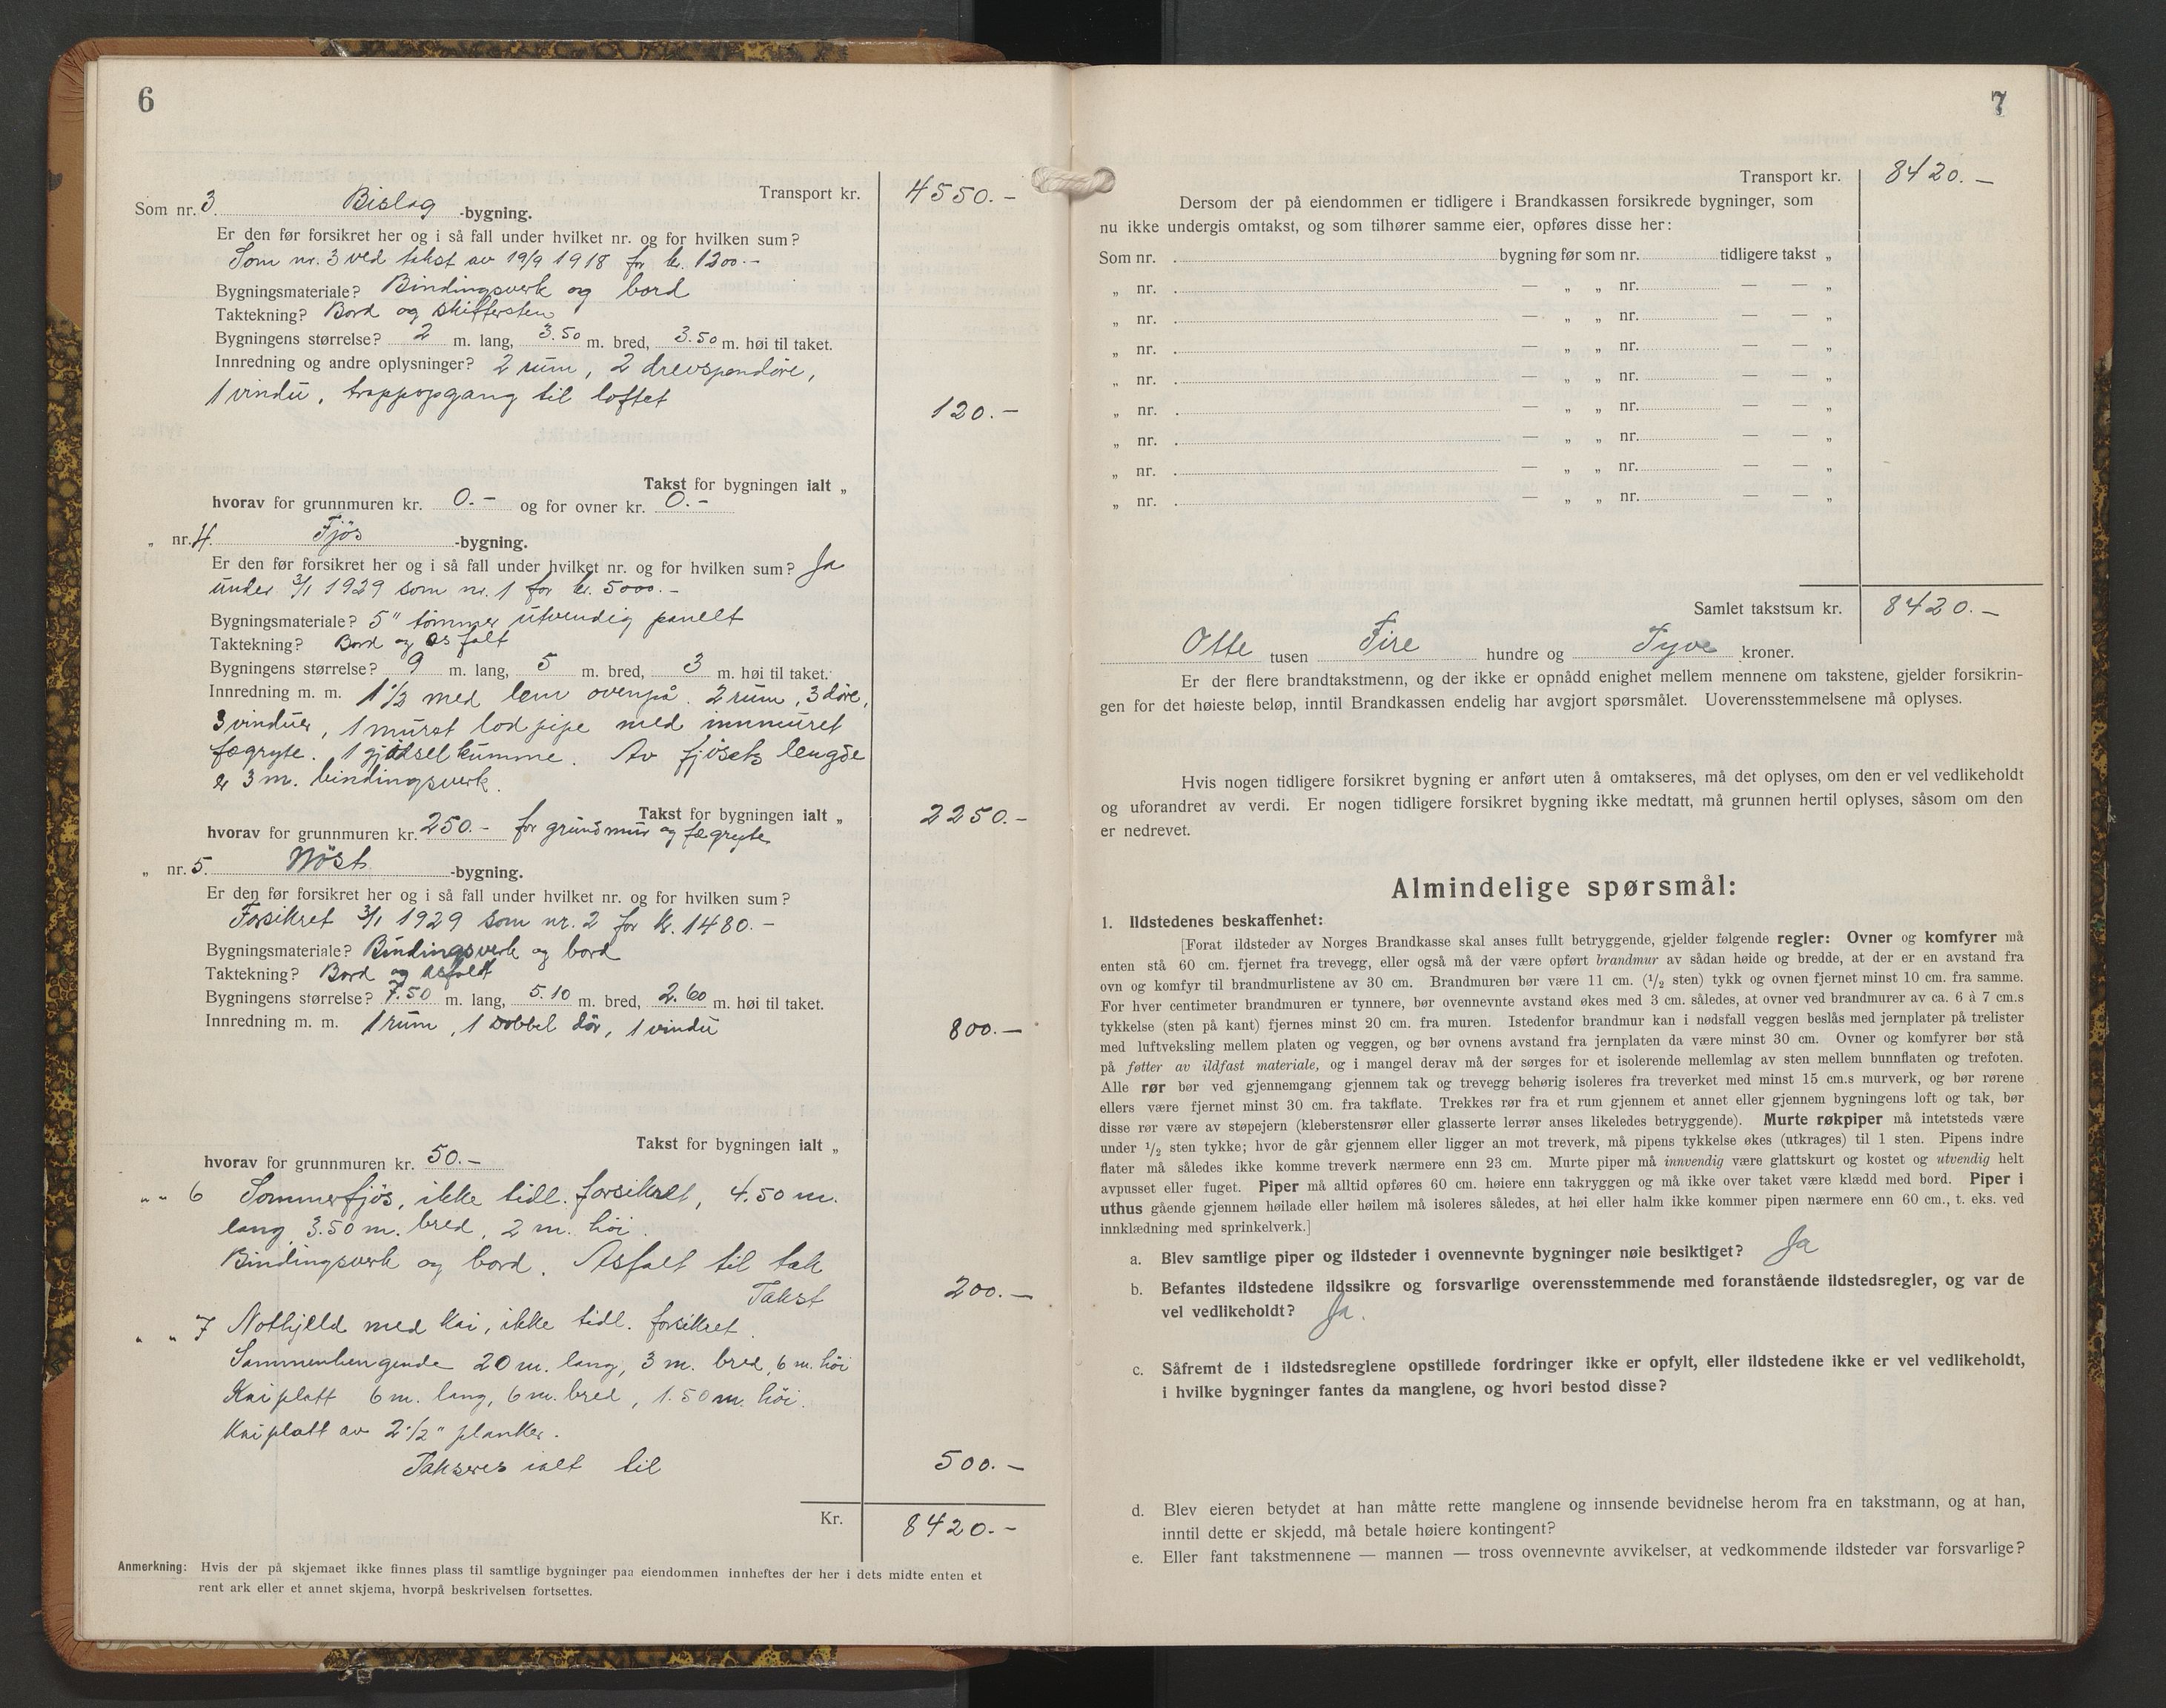 6
Transport kr. 4550.-
Som nr. 3. Bislag -bygning.
Er den før forsikret her og i så fall under hvilket nr. og for hvilken sum?
Som nr. 3 ved takst av 19/9 1918 for kr. 1200.-
Bygningsmateriale? Bindingsverk og bord
Taktekning? Bord og skiffersten
Bygningens størrelse? 2 m. lang, 3.50 m. bred, 3.50 m. høi til taket.
Innredning og andre oplysninger? 2 rum, 2 drevspendøre,
1 vindu, trappopgang til loftet
120.-
Takst for bygningen ialt „
hvorav for grunnmuren kr. 0.- og for ovner kr. 0.-
„ nr. 4. Fjøs -bygning.
Er den før forsikret her og i så fall under hvilket nr. og for hvilken sum? Ja
under 3/1 1929 som nr. 1 for kr. 5000.-
Bygningsmateriale? 5" tømmer utvendig panelt
Taktekning? Bord og asfalt
Bygningens størrelse? 9 m. lang, 5 m. bred, 3 m. høi til taket.
Innredning m. m. 1 1/2 med lem ovenpå. 2 rum, 3 døre,
3 vinduer, 1 muret lodpipe med innmuret
fægryte. 1 gjødselkumme. Av fjøsets lengde
er 3 m. bindingsverk.
Takst for bygningen ialt „ 2250.-
hvorav for grunnmuren kr. 250.- for grundmur og fægryte
„ nr. 5. Nøst -bygning.
Er den før forsikret her og i så fall under hvilket nr. og for hvilken sum?
Forsikret 3/1 1929 som nr. 2 for kr. 1480.-
Bygningsmateriale? Bindingsverk og bord
Taktekning? Bord og asfalt
Bygningens størrelse? 7.50 m. lang, 5.10 m. bred, 2.60 m. høi til taket.
Innredning m. m. 1 rum, 1 dobbel dør, 1 vindu
800.-
Takst for bygningen ialt „
hvorav for grunnmuren kr. 50.-
„ „ 6 Sommerfjøs, ikke tidl. forsikret, 4.50 m.
lang, 3.50 m. bred, 2 m. høi.
Bindingsverk og bord. Asfalt til tak
Takst 200.-
„ „ 7 Nothjeld med kai, ikke tidl. forsikret.
Sammenhengende 20 m. lang, 3 m. bred, 6 m. høi
Kaiplatt 6 m. lang, 6 m. bred, 1.50 m. høi.
Kaiplatt av 2 1/2" planker.
Takseres ialt til 500.-
Kr. 8420.-
Anmerkning: Hvis der på skjemaet ikke finnes plass til samtlige bygninger paa eiendommen innheftes der her i dets midte enten et
rent ark eller et annet skjema, hvorpå beskrivelsen fortsettes.
7
Transport kr. 8420.-
Dersom der på eiendommen er tidligere i Brandkassen forsikrede bygninger, som
nu ikke undergis omtakst, og som tilhører samme eier, opføres disse her:
Som nr. bygning før som nr. tidligere takst „
„ nr. — „ „ nr. — — „
„ nr. — „ „ nr. — — „
„ nr. — „ „ nr. — — „
„ nr. — „ „ nr. — — „
„ nr. — „ „ nr. — — „
„ nr. — „ „ nr. — — „
„ nr. — „ „ nr. — — „
„ nr. — „ „ nr. — — „
Samlet takstsum kr. 8420.-
Otte tusen Fire hundre og Tyve kroner.
Er der flere brandtakstmenn, og der ikke er opnådd enighet mellem mennene om takstene, gjelder forsikrin-
gen for det høieste beløp, inntil Brandkassen endelig har avgjort spørsmålet. Uoverensstemmelsene må oplyses.
Hvis nogen tidligere forsikret bygning er anført uten å omtakseres, må det oplyses, om den er vel vedlikeholdt
og uforandret av verdi. Er nogen tidligere forsikret bygning ikke medtatt, må grunnen hertil oplyses, såsom om den
er nedrevet.
Almindelige spørsmål:
1. Ildstedenes beskaffenhet:
[Forat ildsteder av Norges Brandkasse skal anses fullt betryggende, gjelder følgende regler: Ovner og komfyrer må
enten stå 60 cm. fjernet fra trevegg, eller også må der være opført brandmur av sådan høide og bredde, at der er en avstand fra
ovn og komfyr til brandmurlistene av 30 cm. Brandmuren bør være 11 cm. (1/2 sten) tykk og ovnen fjernet minst 10 cm. fra samme.
For hver centimeter brandmuren er tynnere, bør ovennevnte avstand økes med 3 cm. således, at ovner ved brandmurer av ca. 6 à 7 cm.s
tykkelse (sten på kant) fjernes minst 20 cm. fra muren. Istedenfor brandmur kan i nødsfall veggen beslås med jernplater på trelister
med luftveksling mellem platen og veggen, og bør ovnens avstand fra jernplaten da være minst 30 cm. Ovner og komfyrer bør stå
på føtter av ildfast materiale, og i mangel derav må der sørges for et isolerende mellemlag av sten mellem bunnflaten og trefoten.
Alle rør bør ved gjennemgang gjennem tak og trevegg behørig isoleres fra treverket med minst 15 cm.s murverk, og bør rørene
ellers være fjernet minst 30 cm. fra takflate. Trekkes rør fra et rum gjennem et annet eller gjennem bygningens loft og tak, bør
disse rør være av støpejern (kleberstensrør eller glasserte lerrør anses likeledes betryggende). Murte røkpiper må intetsteds være
under 1/2 sten tykke; hvor de går gjennem eller ligger an mot treverk, må pipens tykkelse økes (utkrages) til 1 sten. Pipens indre
flater må således ikke komme treverk nærmere enn 23 cm. Murte piper må innvendig være glattskurt og kostet og utvendig helt
avpusset eller fuget. Piper må alltid opføres 60 cm. høiere enn takryggen og må ikke over taket være klædd med bord. Piper i
uthus gående gjennem høilade eller høilem må isoleres således, at høi eller halm ikke kommer pipen nærmere enn 60 cm., t. eks. ved
innklædning med sprinkelverk.]
a. Blev samtlige piper og ildsteder i ovennevnte bygninger nøie besiktiget? Ja
b. Befantes ildstedene ildssikre og forsvarlige overensstemmende med foranstående ildstedsregler, og var de
vel vedlikeholdt? Ja.
c. Såfremt de i ildstedsreglene opstillede fordringer ikke er opfylt, eller ildstedene ikke er vel vedlikeholdt,
i hvilke bygninger fantes da manglene, og hvori bestod disse?
d. Blev eieren betydet at han måtte rette manglene og innsende bevidnelse herom fra en takstmann, og at han,
inntil dette er skjedd, må betale høiere kontingent?
e. Eller fant takstmennene — mannen — tross ovennevnte avvikelser, at vedkommende ildsteder var forsvarlige?